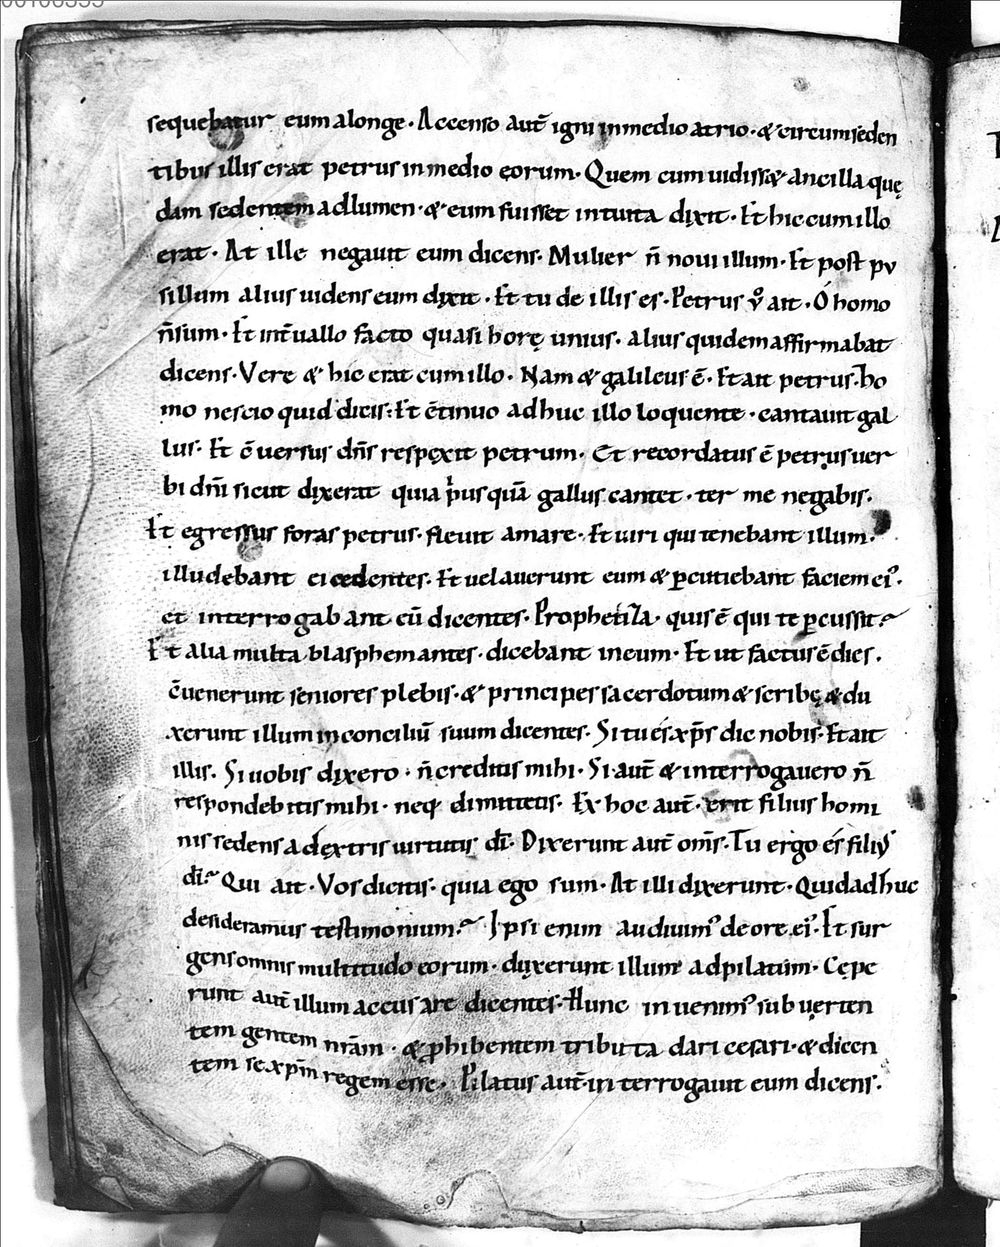 sequebatur eum alonge. Accenso aut̄ igni inmedio atrio. & circumseden
tibus illis erat petrus inmedio eorum. Quem cum uidiss& ancilla quę
dam sedentem adlumen. & eum fuisset intuita dixit. Et hic cum illo
erat. At ille negauit eum dicens. Mulier n̄ noui illum. Et post pu
sillum alius uidens eum dixit. Et tu de illis es. Petrus v̊ ait. Ó homo
n̄ sum. Et int̄uallo facto quasi horę unius. alius quidem affirmabat
dicens. Vere & hic erat cum illo. Nam & galileus ē. Et ait petrus. ho
mo nescio quid dicis. Et c̄tinuo adhuc illo loquente. cantauit gal
lus. Et c̄uersus dn̄s respęxit petrum. Et recordatus ē petrus uer
bi dn̄i sicut dixerat quia p̍usquā gallus cantet. ter me negabis.
Et egressus foras petrus. fleuit amare. Et uiri qui tenebant illum.
illudebant ei cedentes. Et uelauerunt eum & ꝑcutiebant faciem ei᾽.
et interrogabant eū dicentes. Prophetiza. quis ē qui te ꝑcussit?
Et alia multa blasphemantes. dicebant in eum. Et ut factus ē dies.
c̄uenerunt seniores plebis. & principes sacerdotum & scribę & du
xerunt illum in conciliū suum dicentes. Si tu és xp̄s dic nobis. Et ait
illis. Si uobis dixero. n̄ creditis mihi. Si aut̄ & interrogauero n̄
respondebitis mihi. neq; dimittetis. Ex hoc aut̄. erit filius homi
nis sedens adęxtris uirtutis dī. Dixerunt aut̄ om̄s. Tu ergo és fili᾽
dī? Qui ait. Vos dicitis. quia ego sum. At illi dixerunt. Quid adhuc
desideramus testimonium? Ipsi enim audiuim᾽ de ore ei᾽. Et sur
gens omnis multitudo eorum. duxerunt illum adpilatum. Cępe
runt aut̄ illum accusare dicentes. Hunc inuenim᾽ subuerten
tem gentem nr̄am. & ꝓhibentem tributa dari cesari. & dicen
tem se xp̄m regem esse. Pilatus aut̄ interrogauit eum dicens.